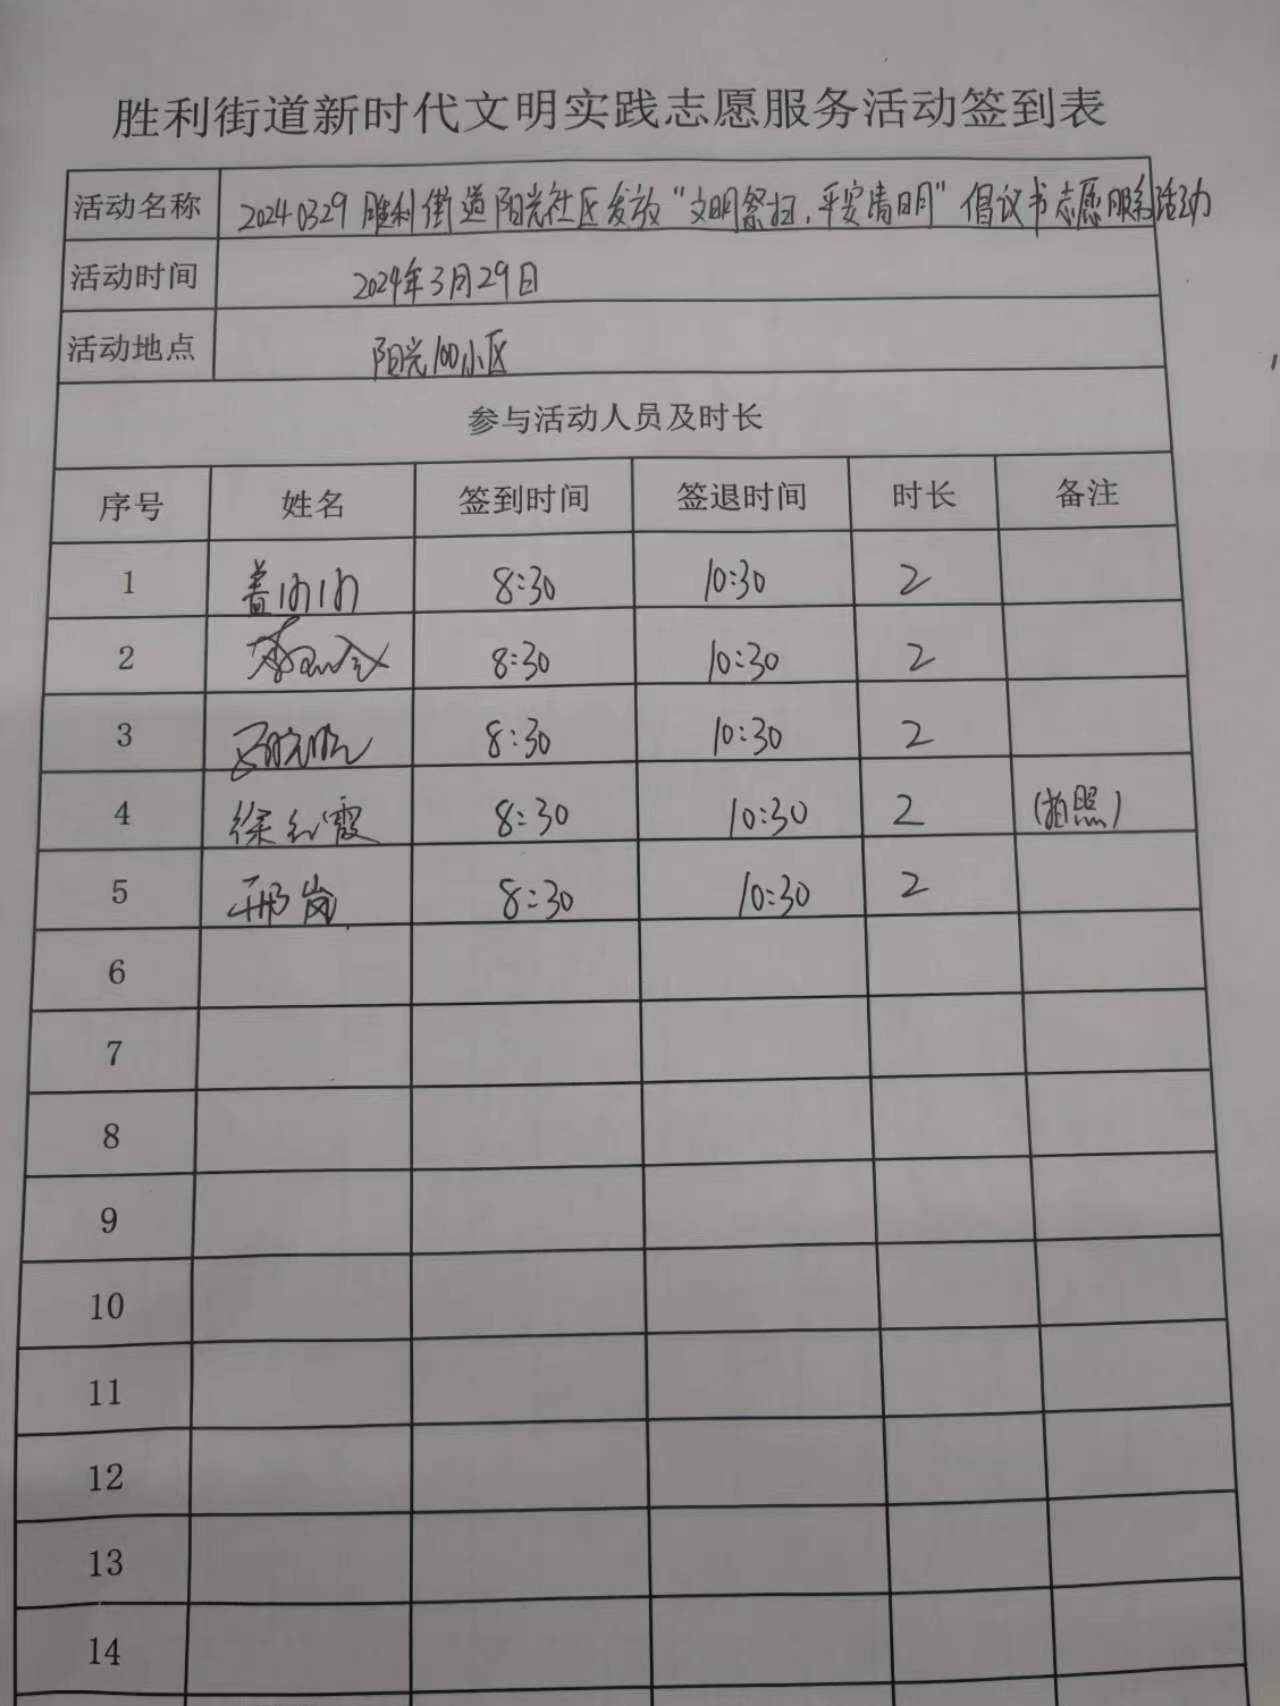 胜利街道新时代文明实践志愿服务活动签到表
活动名称 20240329胜利街道阳光社区发放“文明祭扫,平安清明”倡议书志愿服务活动
活动时间 2024年3月29日
活动地点 阳光100小区
参与活动人员及时长
序号 姓名 签到时间 签退时间 时长 备注
1 8:30 10:30 2
2 8:30 10:30 2
3 8:30 10:30 2
4 徐红霞 8:30 10:30 2 (拍照)
5 邢岚 8:30 10:30 2
6
7
8
9
10
11
12
13
14